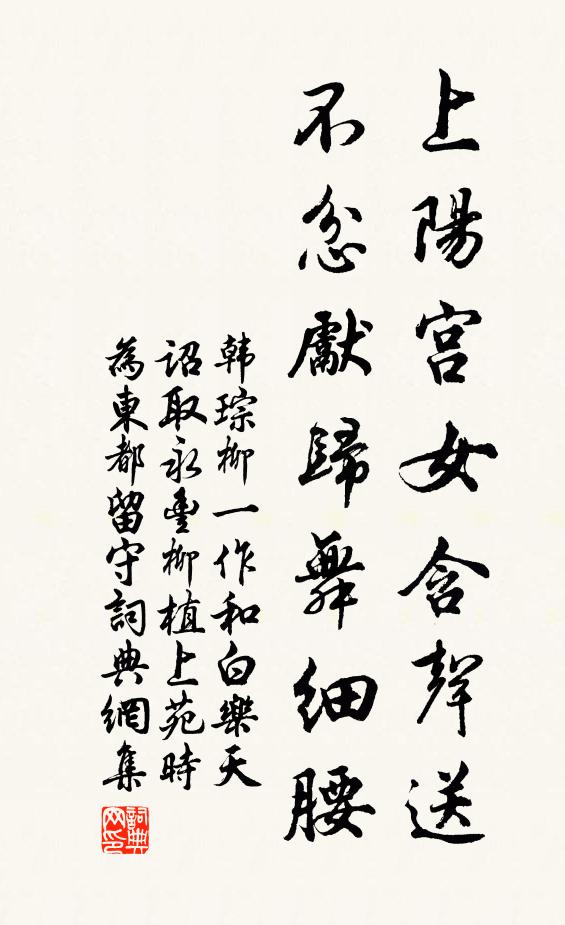 上陽宫女含聲送
不忿獻歸舞细腰
韩琮柳一作和白樂天
詔取永豐柳植上苑時
為東都留守詞典網集
詞典網印